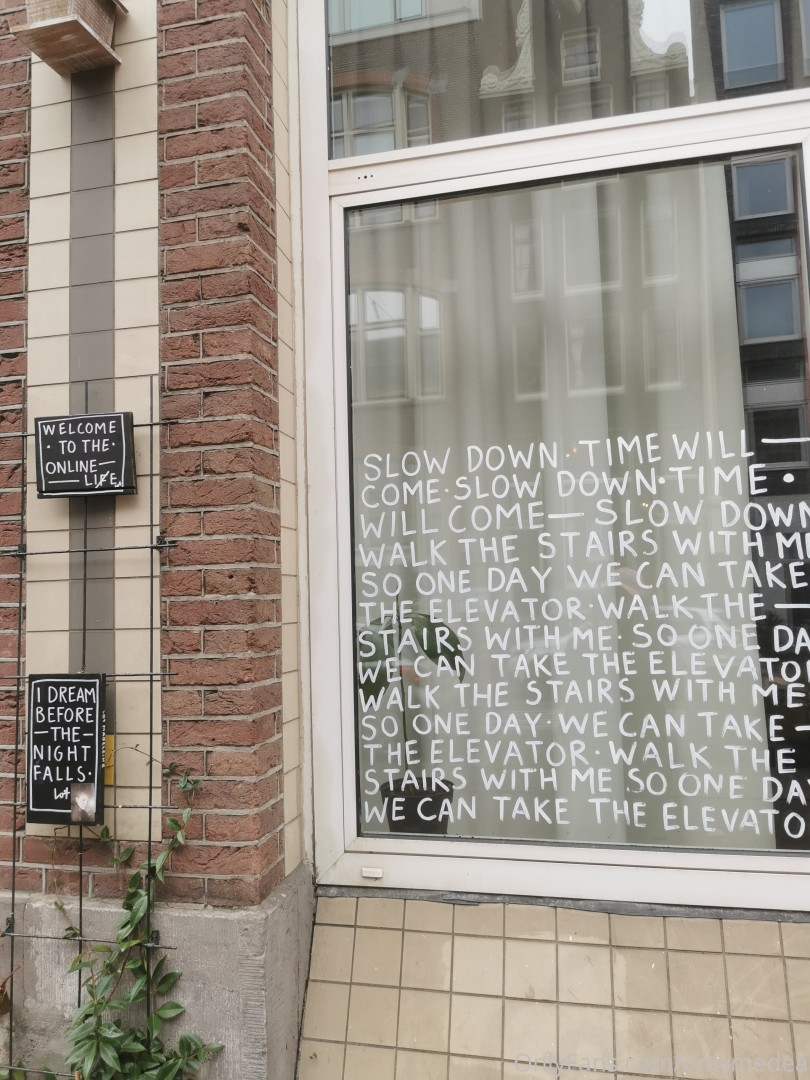 WELCOME
· TO THE ·
ONLINE—
— LIFE.
I DREAM
BEFORE
—THE—
NIGHT
FALLS.
Lot
SLOW DOWN. TIME WILL —
COME·SLOW DOWN·TIME ·
WILL COME— SLOW DOWN
WALK THE STAIRS WITH ME
SO ONE DAY WE CAN TAKE
THE ELEVATOR·WALK THE —
STAIRS WITH ME· SO ONE DA
WE CAN TAKE THE ELEVATO
WALK THE STAIRS WITH ME
SO ONE DAY·WE CAN TAKE —
THE ELEVATOR·WALK THE
STAIRS WITH ME SO ONE DAY
WE CAN TAKE THE ELEVATO